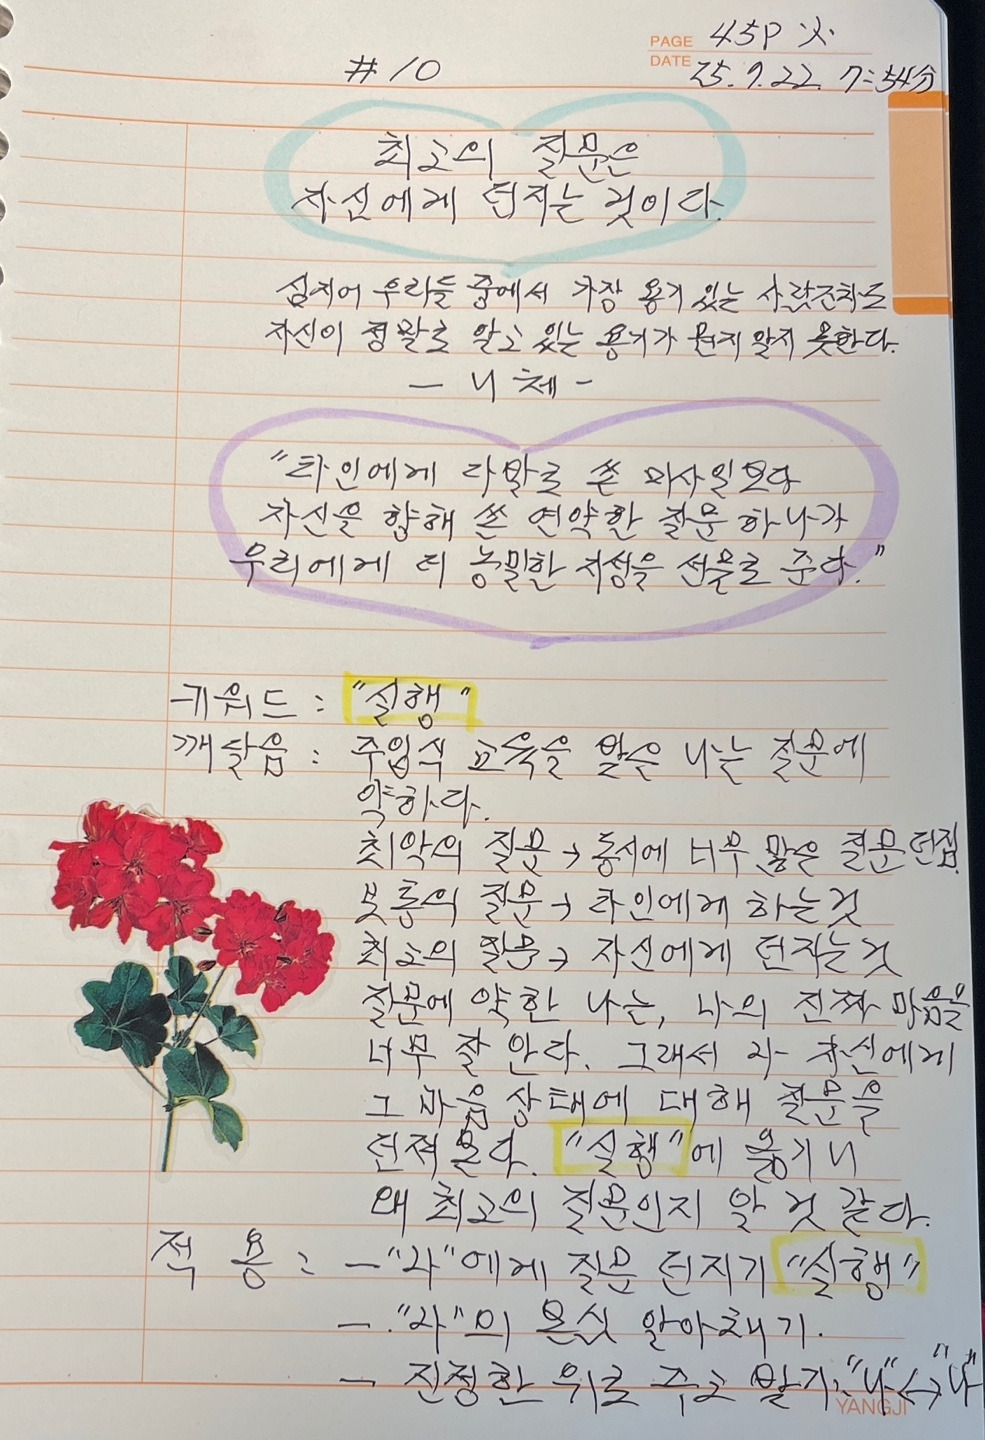 PAGE 45P
DATE 25.9.22. 7:54分
#10
최고의 질문은
자신에게 던지는 것이다.
심지어 우리들 중에서 가장 용기 있는 사람조차도
자신이 정말로 알고 있는 용기가 뭔지 알지 못한다.
- 니체 -
"타인에게 다발로 쏜 미사일보다
자신을 향해 쏜 연약한 질문 하나가
우리에게 더 농밀한 지성을 선물로 준다."
키워드 : "실행"
깨달음 : 주입식 교육을 받은 나는 질문에
약하다.
최악의 질문 → 동시에 너무 많은 질문 던짐
보통의 질문 → 타인에게 하는것
최고의 질문 → 자신에게 던지는것
질문에 약한 나는, 나의 진짜 마음을
너무 잘 안다. 그래서 나 자신에게
그 마음 상태에 대해 질문을
던져 본다. "실행"에 옮기니
왜 최고의 질문인지 알 것 같다.
적용 : - "나"에게 질문 던지기 "실행"
- "나"의 욕심 알아채기.
- 진정한 위로 주고 받기. "나" ↔ "나"
YANGJI